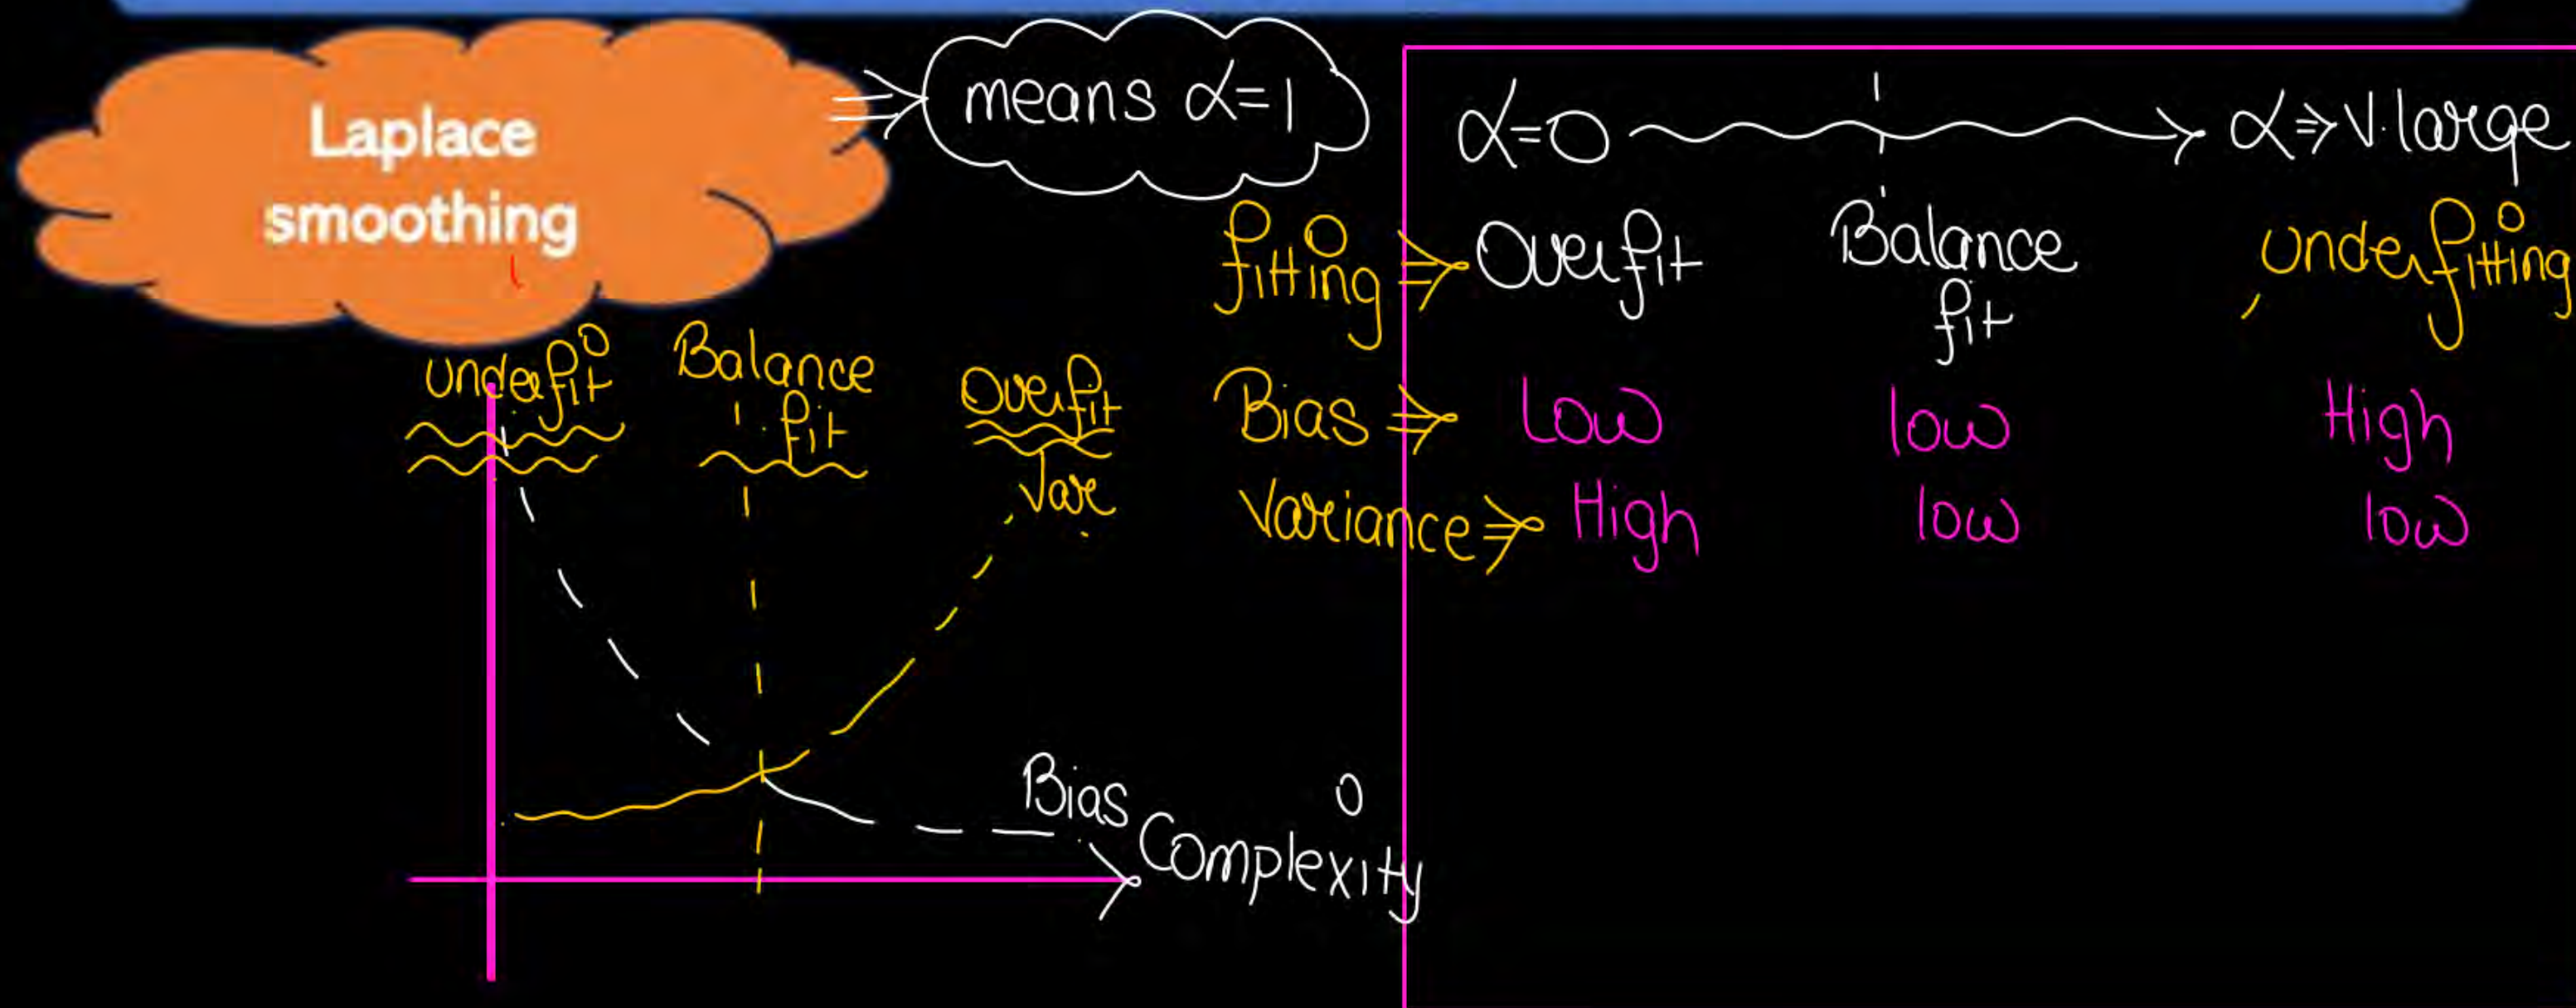 Laplace
smoothing
⇒ means α=1
α=0 → α⇒V.large
fitting ⇒ Overfit Balance fit underfitting
Bias ⇒ Low low High
Variance ⇒ High low low
underfit Balance fit Overfit
Var
Bias
Complexity